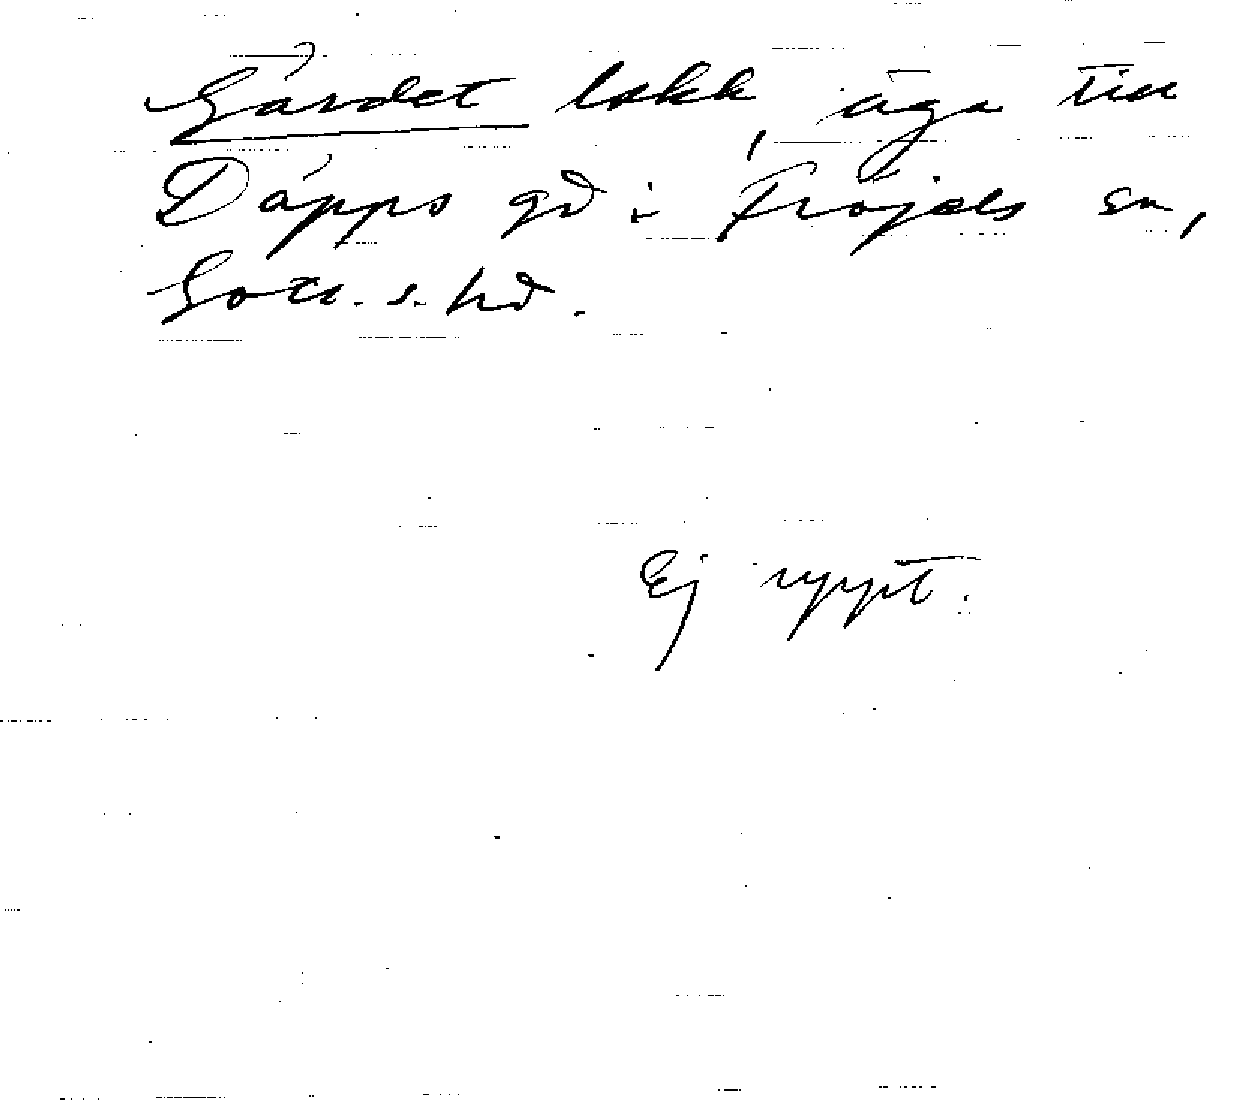 Gärdet lokk, äga till
Däpps gd i Fröjels sn,
Gotl. s. hd.
Ej uppt.